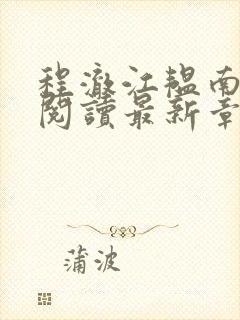 程澈江韞南
閱讀最新章
蒲波